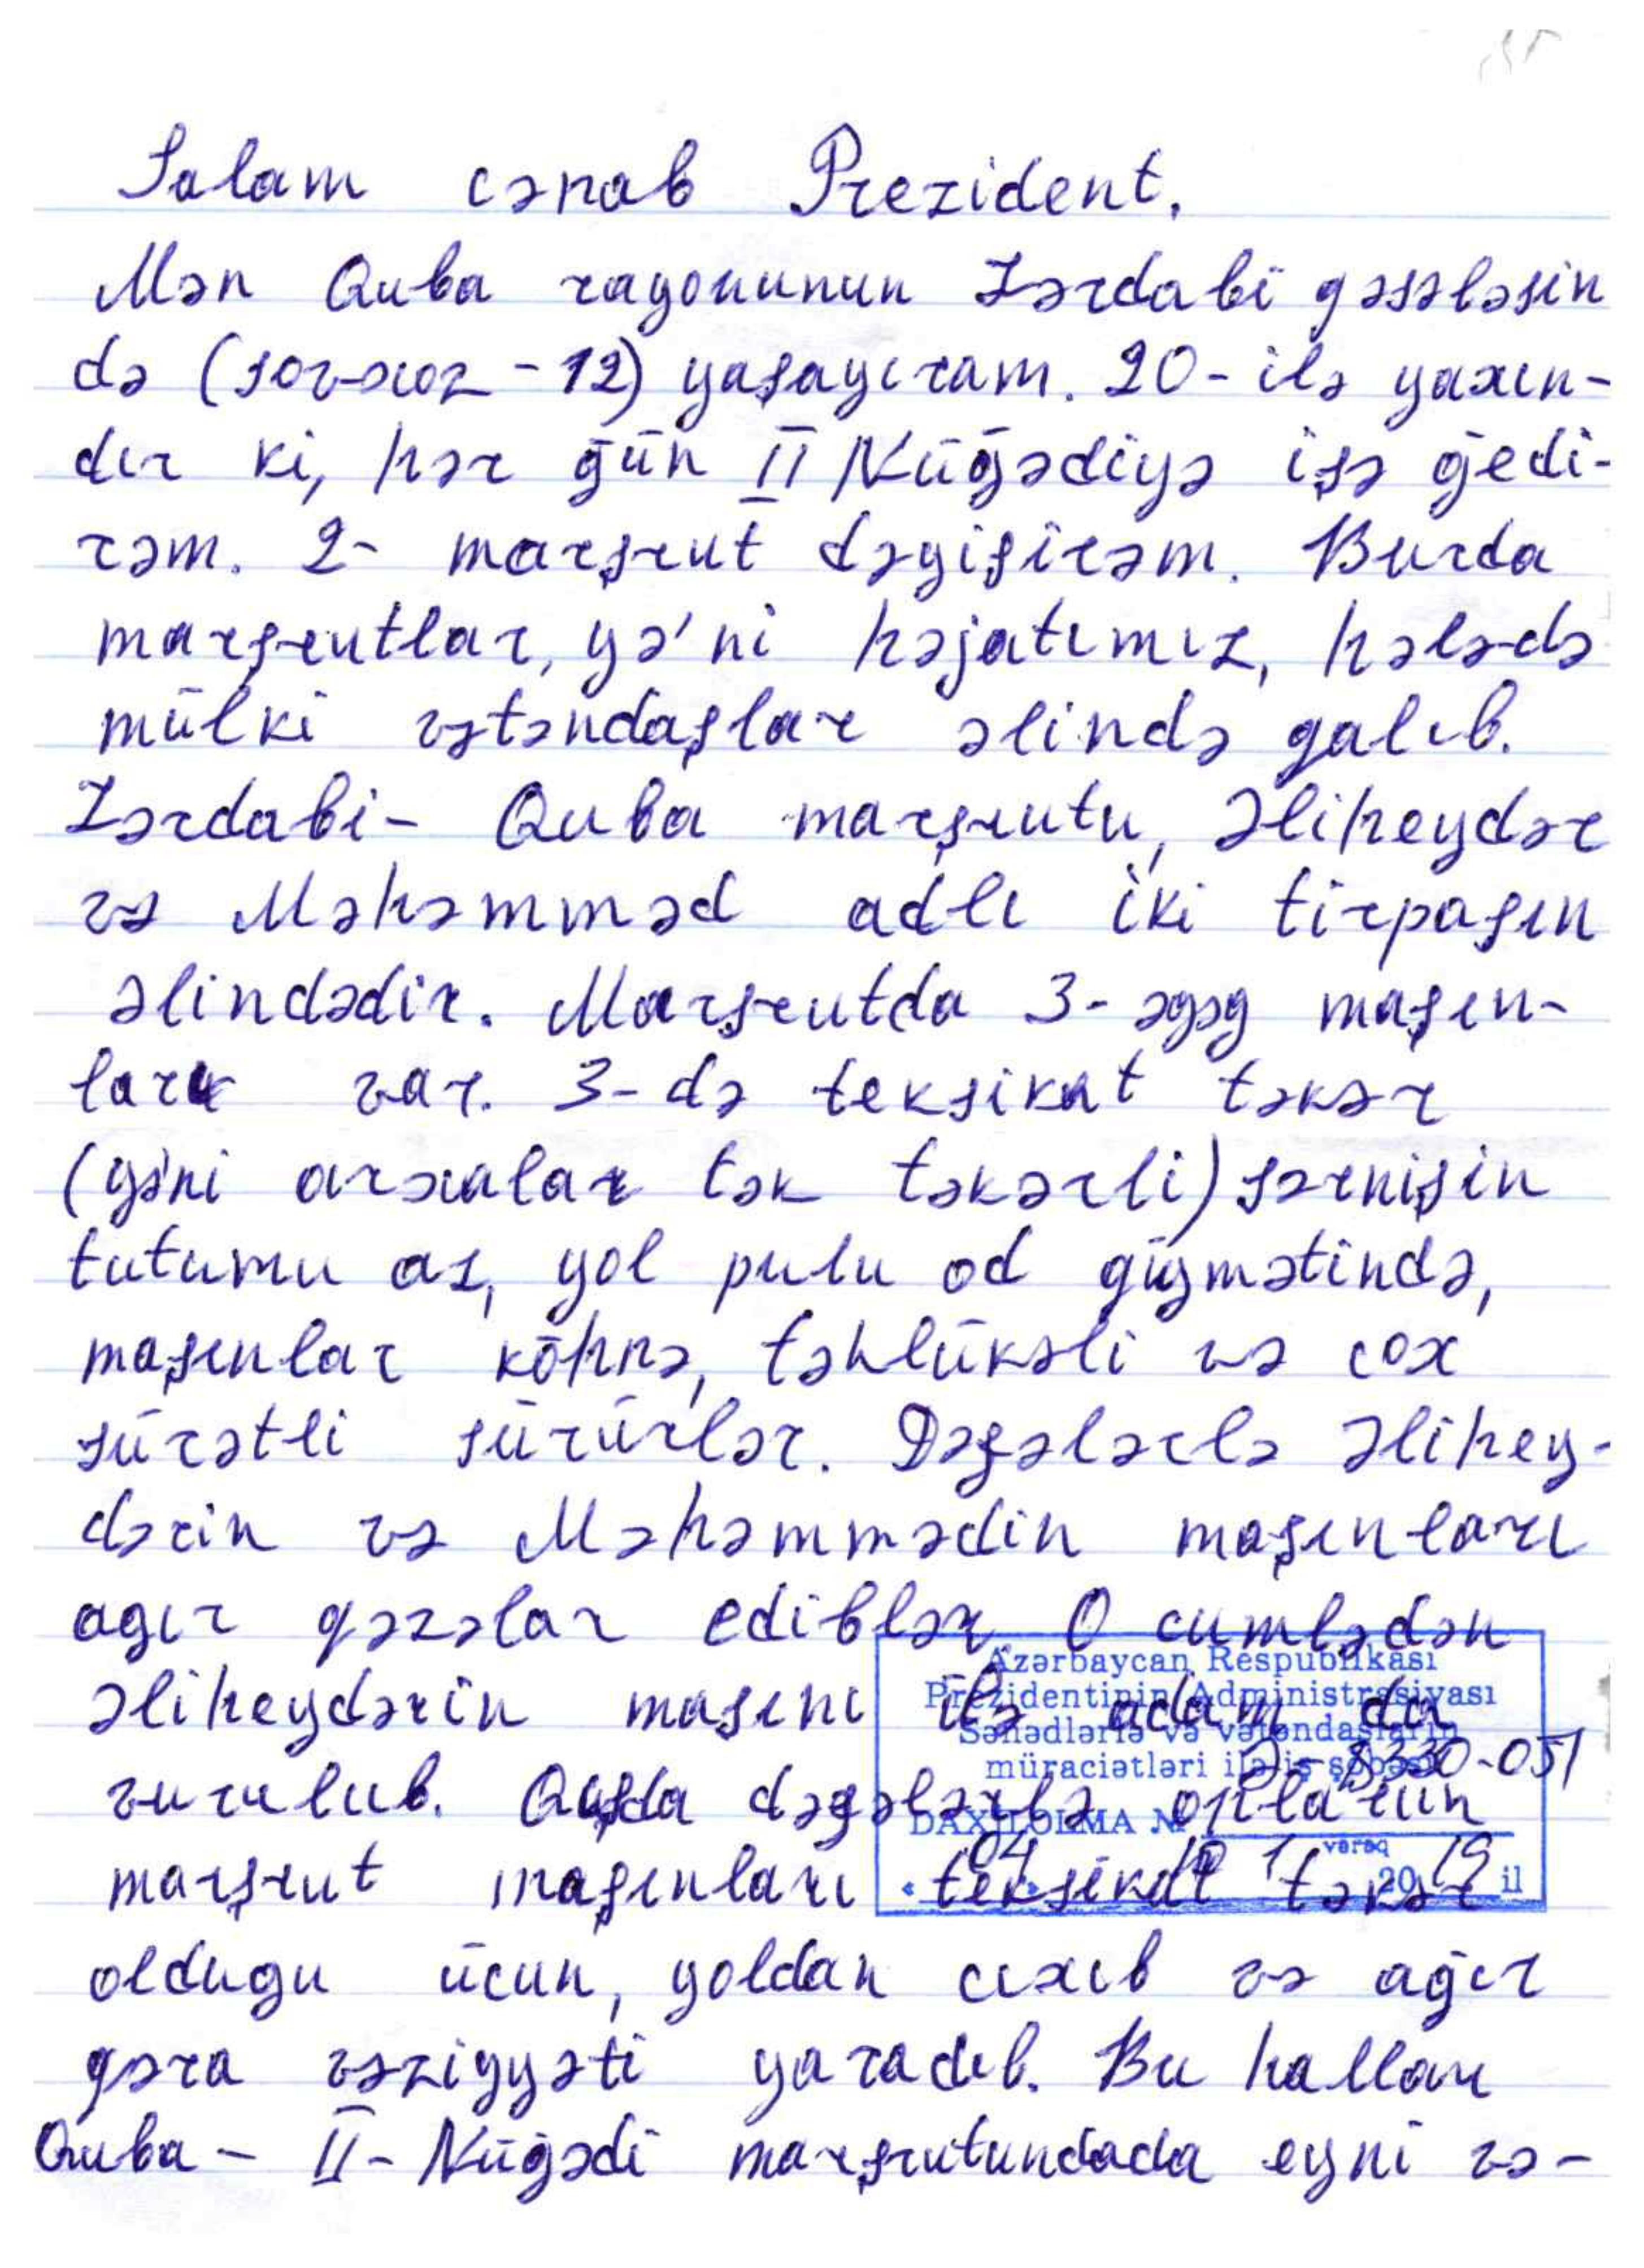 Salam cənab Prezident.
Mən Quba rayonunun Zərdabi gəsəbəsin
də (sovxoz-12) yaşayıram. 20-ilə yaxın-
dır ki, hər gün II Nügədiyə işə gedi-
rəm. 2- marşrut dəyişirəm. Burda
marşrutlar, yə'ni həjatımız, hələ-də
mülki vətəndaşlar əlində galıb.
Zərdabi- Quba marşrutu, Əliheydər
və Məhəmməd adlı iki tirpaşın
əlindədir. Marşrutda 3- əgəg maşın-
ları var. 3-də teksikat təkər
(yə'ni arxalar tək təkərli) sərnişin
tutumu az, yol pulu od giymətində,
maşınlar köhnə, təhlükəli və cox
sürətli sürürlər. Dəfələrlə Əlihey-
dərin və Məhəmmədin maşınları
agır qəzalar ediblər O cumlədən
Əliheydərin maşını ilə adam da
vurulub. Qışda dəfələrlə onların
marşrut maşınları teksikat təkər
oldugu ücun, yoldan cıxıb və ağır
gəza vəziyyəti yaradıb. Bu halları
Quba - II- Nügədi marşrutundada eyni və-
Azərbaycan Respublikası
Prezidentinin Administrasiyası
Sənədlərlə və vətəndaşların
müraciətləri ilə iş şöbəsi
Ə-8330-051
DAXİLOLMA №
vərəq
« 04 » 10 1 20 19 il